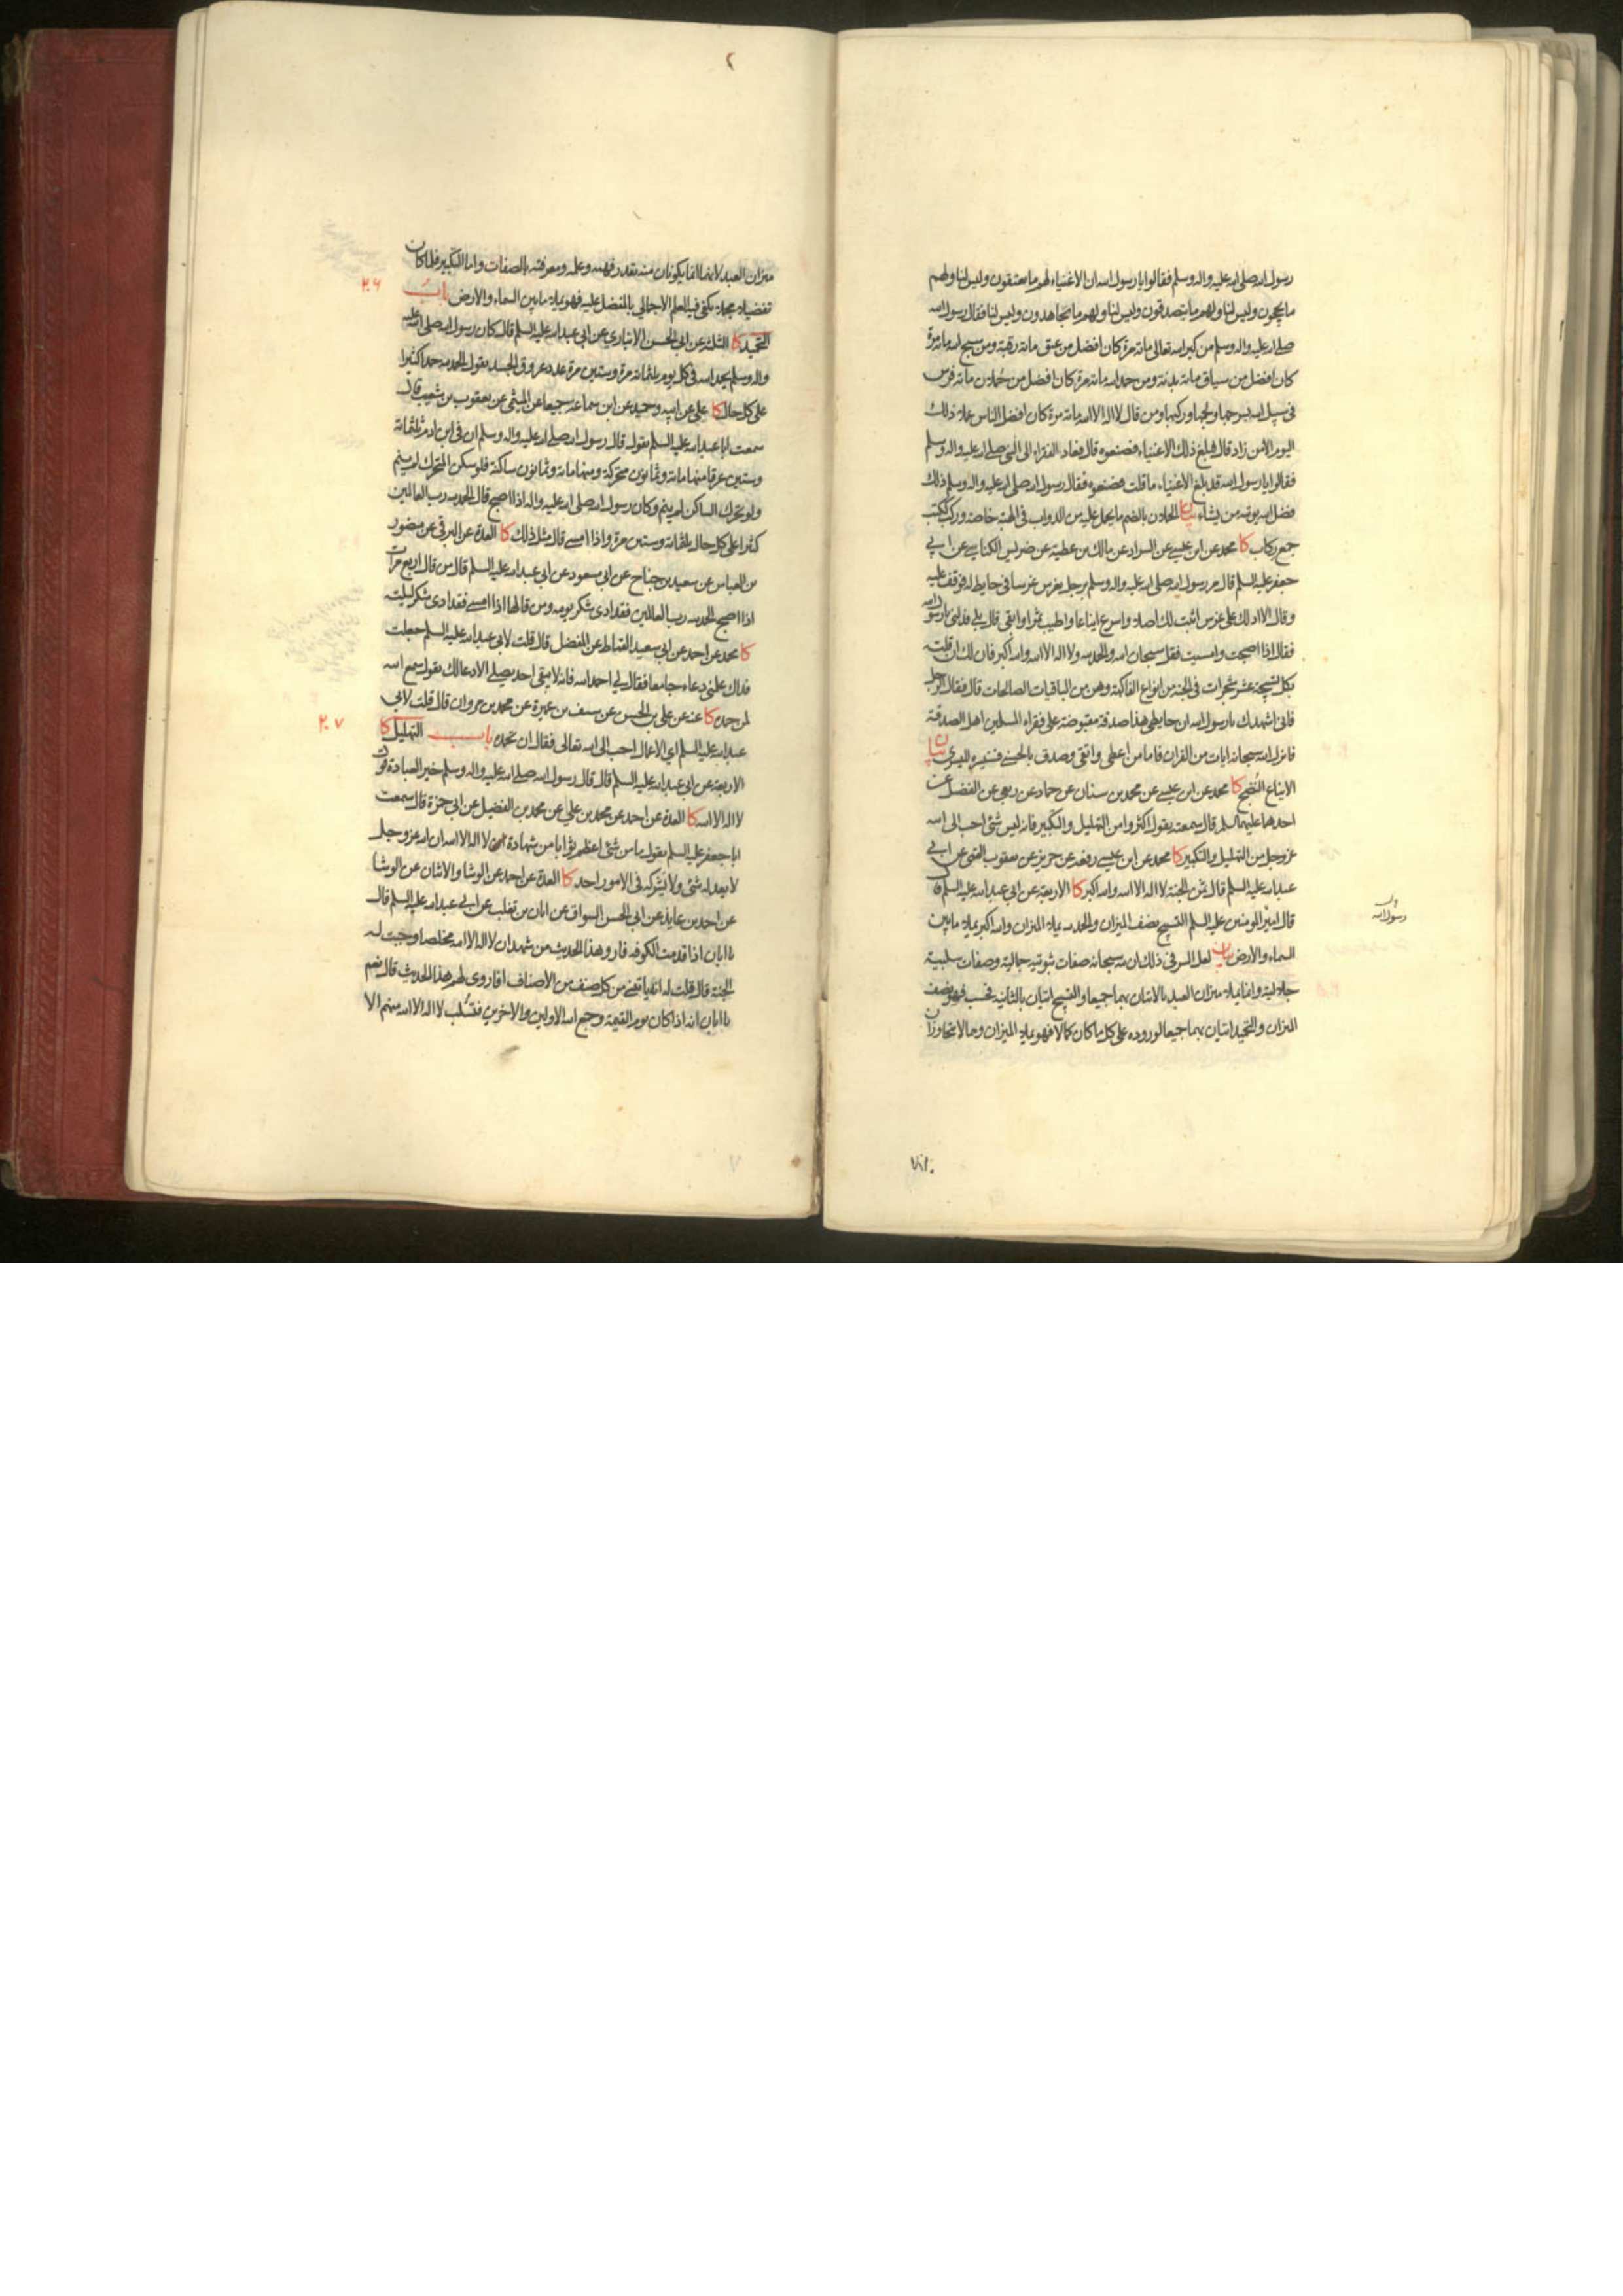 رسول الله صلى الله عليه واله وسلم فقالوا يا رسول الله ان الاغنياء لهم ما يعتقون وليس لنا ولهم
ما يحجون وليس لنا ولهم ما يتصدقون وليس لنا ولهم ما يجاهدون وليس لنا فقال رسول الله
صلى الله عليه واله وسلم من كبر الله تعالى مائة مرة كان افضل من عتق مائة رقبة ومن سبح الله مائة مرة
كان افضل من سياق مائة بدنة ومن حمد الله مائة مرة كان افضل من حُملان مائة فرس
في سبيل الله بسرجها ولجمها وركبها ومن قال لا اله الا الله مائة مرة كان افضل الناس عملا ذلك
اليوم الا من زاد قال فبلغ ذلك الاغنياء فصنعوه قال فعاد الفقراء الى النبي صلى الله عليه واله وسلم
فقالوا يا رسول الله قد بلغ الاغنياء ما قلت فصنعوه فقال رسول الله صلى الله عليه واله وسلم ذلك
فضل الله يؤتيه من يشاء بيان الحملان بالضم ما يحمل عليه من الدواب في الهبة خاصة وركب ككتب
جمع ركاب كا محمد عن ابن عيسى عن السراد عن مالك بن عطية عن ضريس الكناسي عن ابي
جعفر عليه السلم قال مر رسول الله صلى الله عليه واله وسلم برجل يغرس غرسا في حايط له فوقف عليه
وقال الا ادلك على غرس اثبت لك اصلا واسرع ايناعا واطيب ثمرا وابقى قال بلى فدلني يا رسول الله
فقال اذا اصبحت وامسيت فقل سبحان الله والحمد لله ولا اله الا الله والله اكبر فان لك ان قلته
بكل تسبيحة عشر شجرات في الجنة من انواع الفاكهة وهن من الباقيات الصالحات قال فقال الرجل
فاني اشهدك يا رسول الله ان حايطي هذا صدقة مقبوضة على فقراء المسلمين اهل الصدقة
فانزل الله سبحانه ايات من القران فاما من اعطى واتقى وصدق بالحسنى فسنيسره لليسرى بيان
الايناع النُضج كا محمد عن ابن عيسى عن محمد بن سنان عن حماد عن ربعي عن الفضيل عن
احدهما عليهما السلم قال سمعته يقول اكثروا من التهليل والتكبير فانه ليس شئ احب الى الله
عز وجل من التهليل والتكبير كا محمد عن ابن عيسى رفعه عن حريز عن يعقوب القمي عن ابي
عبد الله عليه السلم قال ثمن الجنة لا اله الا الله والله اكبر كا الاربعة عن ابي عبد الله عليه السلم قال
قال امير المؤمنين عليه السلم التسبيح نصف الميزان والحمد لله يملا الميزان والله اكبر يملا ما بين
السماء والارض بيان لعل السر في ذلك ان لله سبحانه صفات ثبوتية جمالية وصفات سلبية
جلالية وانما يملا ميزان العبد بالاتيان بهما جميعا والتسبيح اتيان بالثانية فحسب فهو نصف
الميزان والتحميد اتيان بهما جميعا لوروده على كل ما كان كمالا فهو يملا الميزان وهما لا يتجاوزان
رسول الله
ميزان العبد لانهما انما يكونان منه بقدر فهمه وعلمه ومعرفته بالصفات واما التكبير فلما كان
تفضيلا مجملا يكفي فيه العلم الاجمالي بالمفضل عليه فهو يملا ما بين السماء والارض باب
٢٠٦
التحميد كا الثلاثة عن ابي الحسن الانباري عن ابي عبد الله عليه السلم قال كان رسول الله صلى الله عليه
واله وسلم يحمد الله في كل يوم ثلثمائة مرة وستين مرة عدد عروق الجسد يقول الحمد لله حمدا كثيرا
على كل حال كا علي عن ابيه وحميد عن ابن سماعة جميعا عن الميثمي عن يعقوب بن شعيب قال
سمعت ابا عبد الله عليه السلم يقول قال رسول الله صلى الله عليه واله وسلم ان في ابن ادم ثلثمائة
وستين عرقا منها مائة وثمانون متحركة ومنها مائة وثمانون ساكنة فلو سكن المتحرك لم ينم
ولو تحرك الساكن لم ينم وكان رسول الله صلى الله عليه واله اذا اصبح قال الحمد لله رب العالمين
كثيرا على كل حال ثلثمائة وستين مرة واذا امسى قال مثل ذلك كا العدة عن البرقي عن منصور
بن العباس عن سعيد بن جناح عن ابي مسعود عن ابي عبد الله عليه السلم قال من قال اربع مرات
اذا اصبح الحمد لله رب العالمين فقد ادى شكر يومه ومن قالها اذا امسى فقد ادى شكر ليلته
كا محمد عن احمد عن ابي سعيد القماط عن المفضل قال قلت لابي عبد الله عليه السلم جعلت
فداك علمني دعاء جامعا فقال لي احمد الله فانه لا يبقى احد يصلي الا دعا لك يقول سمع الله
لمن حمده كا عنه عن علي بن الحسن عن سيف بن عميرة عن محمد بن مروان قال قلت لابي
عبد الله عليه السلم اي الاعمال احب الى الله تعالى فقال ان تحمده باب التهليل كا
٢٠٧
الاربعة عن ابي عبد الله عليه السلم قال قال رسول الله صلى الله عليه واله وسلم خير العبادة قول
لا اله الا الله كا العدة عن احمد عن محمد بن علي عن محمد بن الفضيل عن ابي حمزة قال سمعت
ابا جعفر عليه السلم يقول ما من شئ اعظم ثوابا من شهادة ان لا اله الا الله ان الله عز وجل
لا يعدله شئ ولا يشركه في الامور احد كا العدة عن احمد عن الوشا والاثنان عن الوشا
عن احمد بن عايذ عن ابي الحسن السواق عن ابان بن تغلب عن ابي عبد الله عليه السلم قال
يا ابان اذا قدمت الكوفة فارو هذا الحديث من شهد ان لا اله الا الله مخلصا وجبت له
الجنة قال قلت له انه ياتيني من كل صنف من الاصناف افاروي لهم هذا الحديث قال نعم
يا ابان انه اذا كان يوم القيمة وجمع الله الاولين والاخرين فتُسلب لا اله الا الله منهم الا